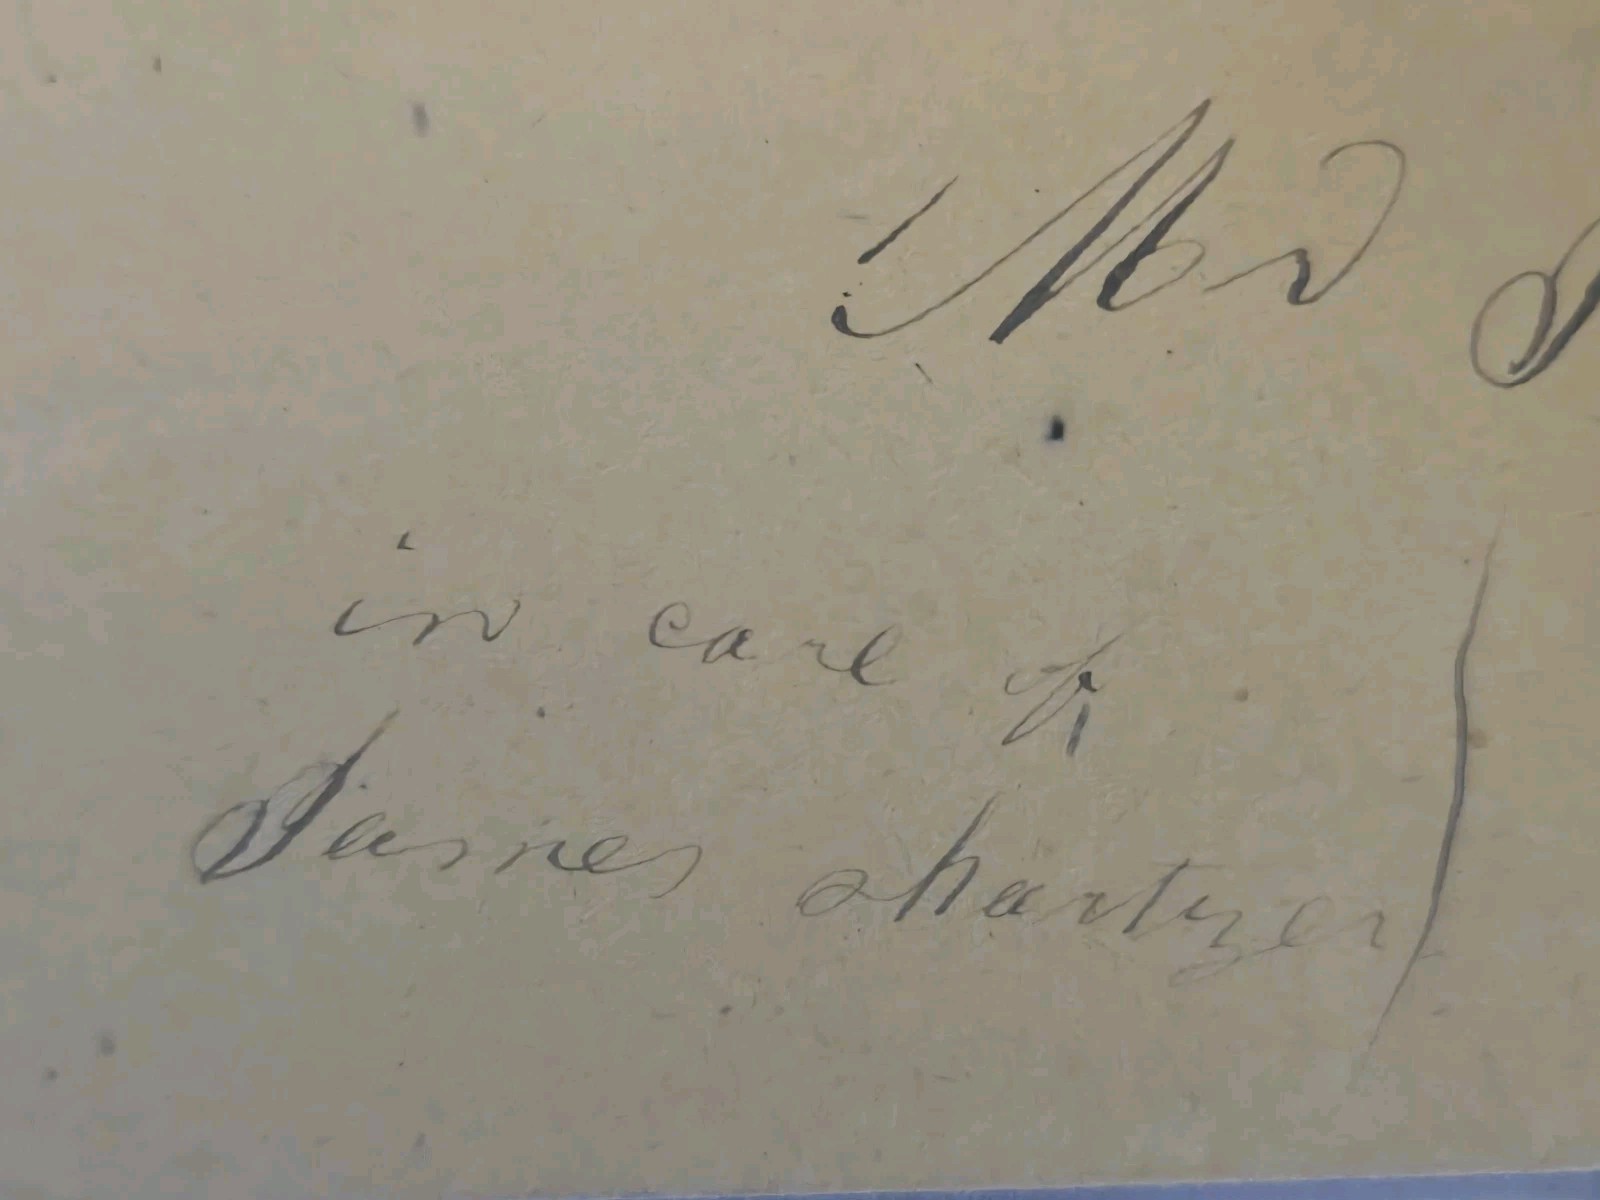 Mr
in care of
James shartzer